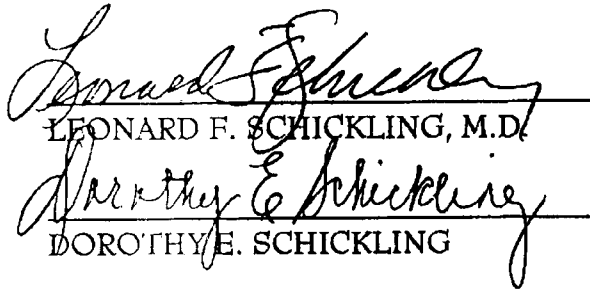 Leonard F Schickling
LEONARD F. SCHICKLING, M.D.
Dorothy E Schickling
DOROTHY E. SCHICKLING